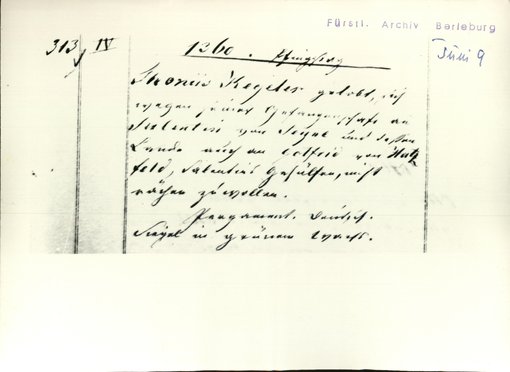 Fürstl. Archiv Berleburg
313, IV
1360. Pfingstag
Juni 9
gelobt, sich
wegen seiner Gefangenschaft an
Salentin von Seyne und dessen
Lande auch an von Hatz-
feld, Salentins Gehülfen, nicht
rächen zu wollen.
Pergament. Deutsch.
Siegel in grünem Wachs.